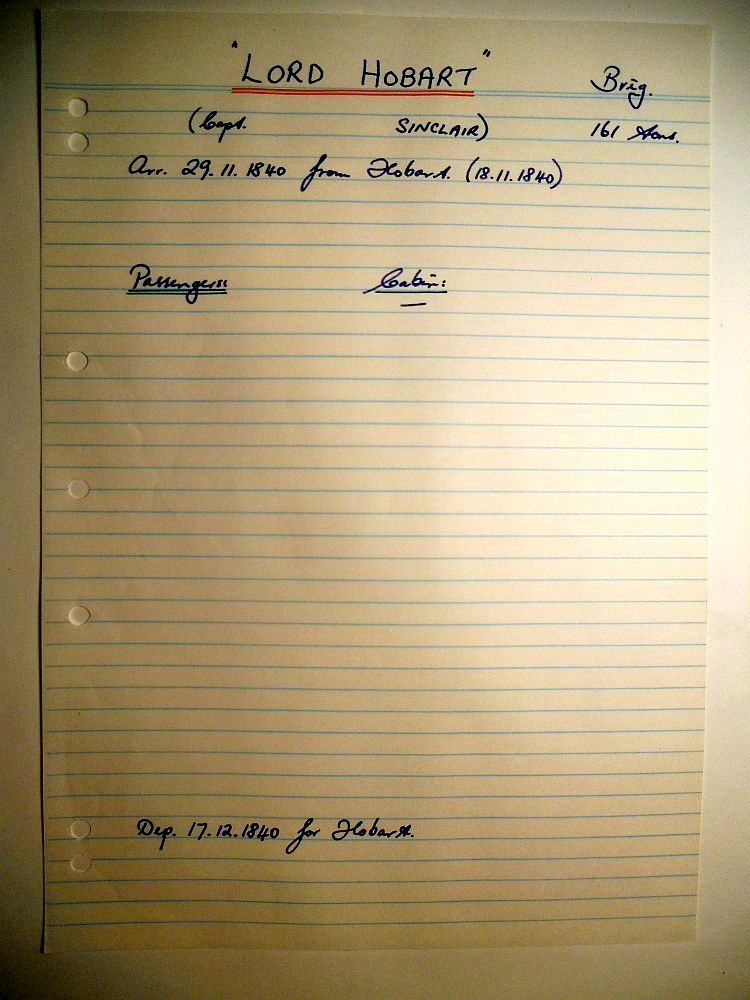 "LORD HOBART" Brig.
(Capt. SINCLAIR) 161 tons.
Arr. 29.11.1840 from Hobart. (18.11.1840)
Passengers: Cabin:
—
Dep. 17.12.1840 for Hobart.